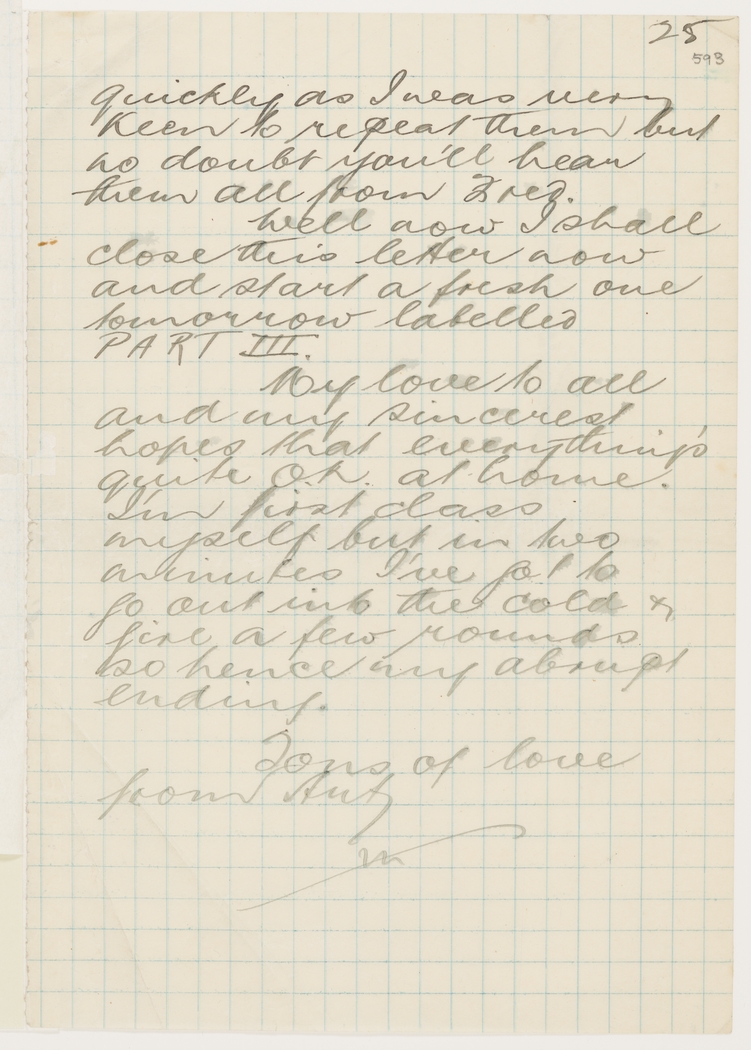 25
593
quickly as I was very
keen to repeat them but
no doubt you'll hear
them all from Fred.
Well now I shall
close this letter now
and start a fresh one
tomorrow labelled
PART III.
My love to all
and my sincerest
hopes that everything's
quite O.K. at home.
I'm first class
myself but in two
minutes I've got to
go out into the cold &
fire a few rounds
so hence my abrupt
ending.
Tons of love
from